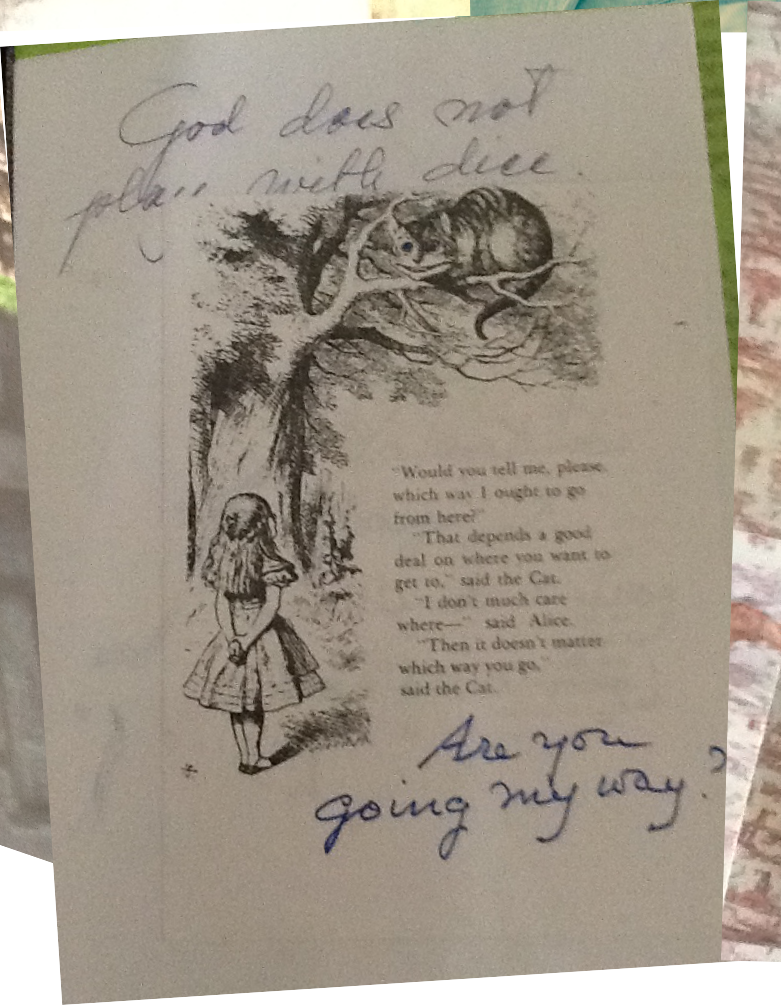 God does not
play with dice.
"Would you tell me, please,
which way I ought to go
from here?"
"That depends a good
deal on where you want to
get to," said the Cat.
"I don't much care
where—" said Alice.
"Then it doesn't matter
which way you go,"
said the Cat.
Are you
going my way?